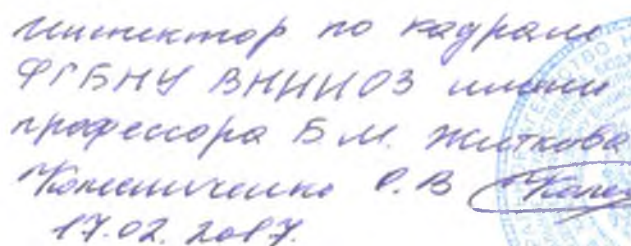 инспектор по кадрам
ФГБНУ ВНИИОЗ имени
профессора Б.М. Житкова
О.В
17.02.2017.